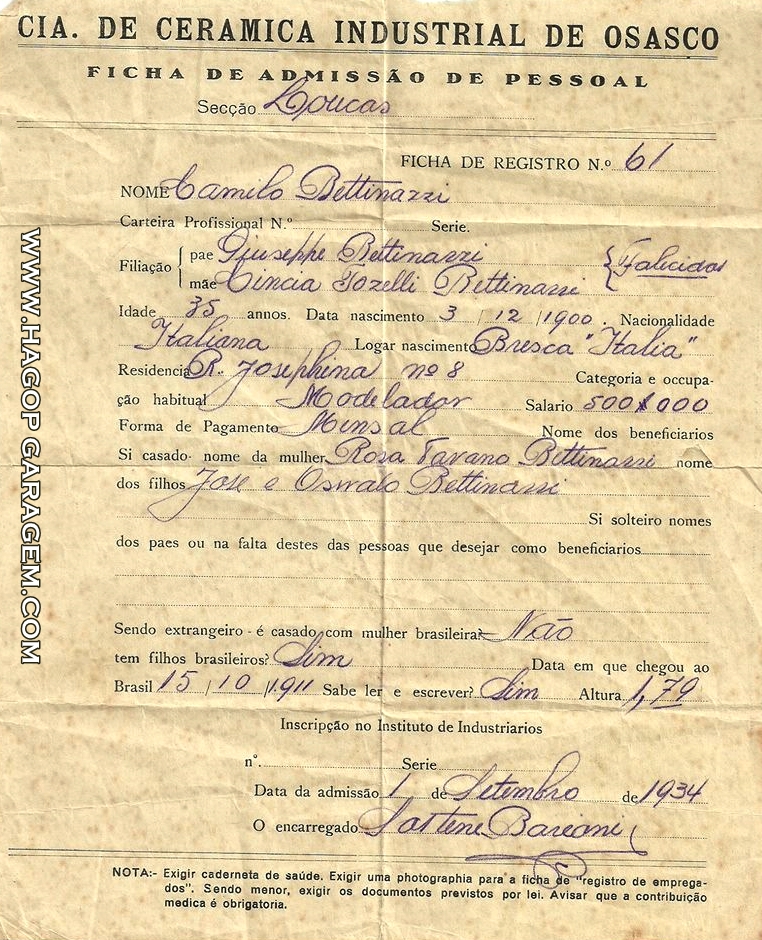 CIA. DE CERAMICA INDUSTRIAL DE OSASCO
FICHA DE ADMISSÃO DE PESSOAL
Secção Louças
FICHA DE REGISTRO N.º 61
NOME Camilo Bettinazzi
Carteira Profissional N.º Serie.
Filiação { pae Giusephe Bettinazzi { Falicidos
mãe Cincia Tozelli Bettinassi
Idade 35 annos. Data nascimento 3 / 12 / 1900. Nacionalidade
Italiana Logar nascimento Bresca "Italia"
Residencia R. Josephina nº 8 Categoria e occupa-
ção habitual Modelador Salario 500$000
Forma de Pagamento Mensal Nome dos beneficiarios
Si casado- nome da mulher Rosa Tavano Bettinassi nome
dos filhos Jose e Oswalo Bettinassi
Si solteiro nomes
dos paes ou na falta destes das pessoas que desejar como beneficiarios
Sendo extrangeiro - é casado com mulher brasileira? Não
tem filhos brasileiros? Sim Data em que chegou ao
Brasil 15 / 10 / 1911 Sabe ler e escrever? Sim Altura 1,79
Inscripção no Instituto de Industriarios
nº. Serie
Data da admissão 1 de Setembro de 1934
O encarregado
NOTA:- Exigir caderneta de saúde. Exigir uma photographia para a ficha de "registro de emprega-
dos". Sendo menor, exigir os documentos previstos por lei. Avisar que a contribuição
medica é obrigatoria.
WWW.HAGOP GARAGEM.COM